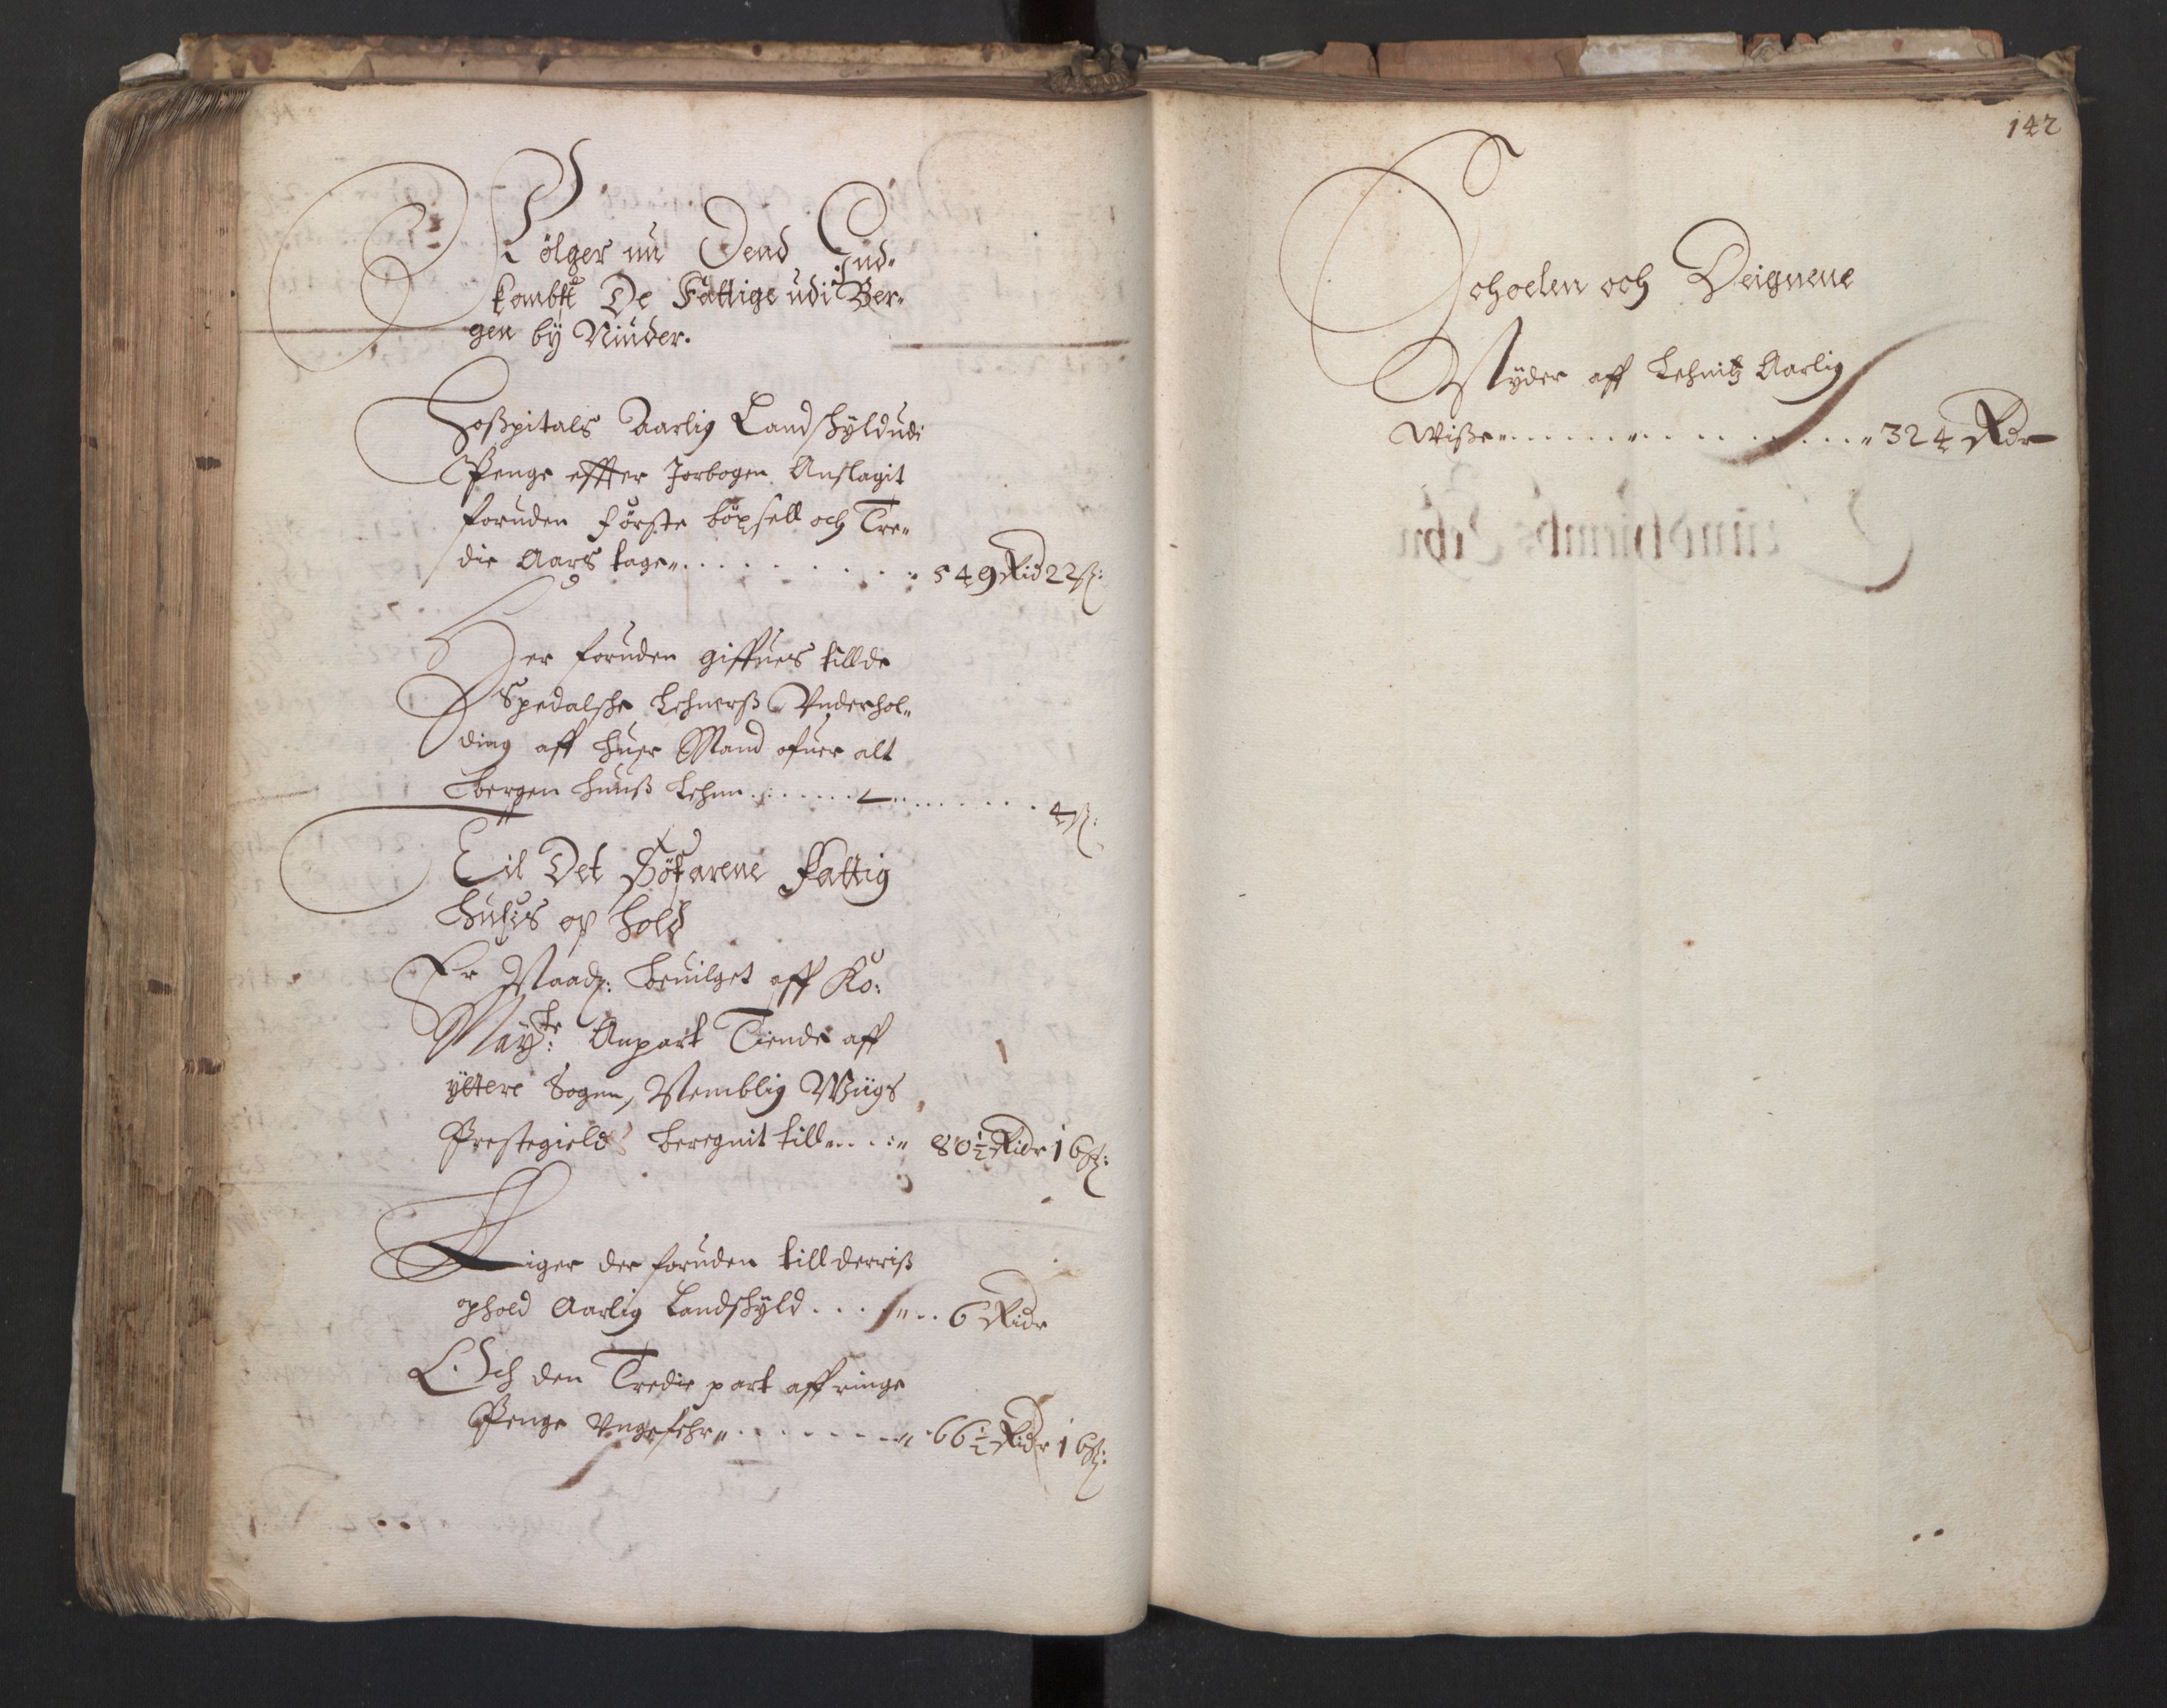 Fölger nu Dend Ind-
kombst De Fattige udi Ber-
gen by Niuder.
Hosspitals Aarlig Landskyld udi
Penge effter Jorbogen Anslagit
foruden förste böxsell och Tre-
die Aars tage 549 Rid 22 ß:
Her foruden giffues till de
Spedalske Lehnerß Underhol-
ding aff huer Mand ofuer alt
Bergen huuß Lehnn 4 ß:
Til Det Söfarene Fattig
huusis op hold
Er Naadg: beuilget aff Ko:
Maÿtz: Anpart Tiende aff
ÿttere Sogen, Nemblig Wiigs
Prestegields beregnit till 80½ Ridr 16 ß:
Liger der foruden till derriß
ophold Aarlig Landskyld 6 Ridr
Och den Tredie part aff ringe
Penge Ungefehr 66½ Ridr 16 ß:
142
Schoelen och Deignene
Nyder aff Lehnitz Aarlig
Wisse 324 Rdr